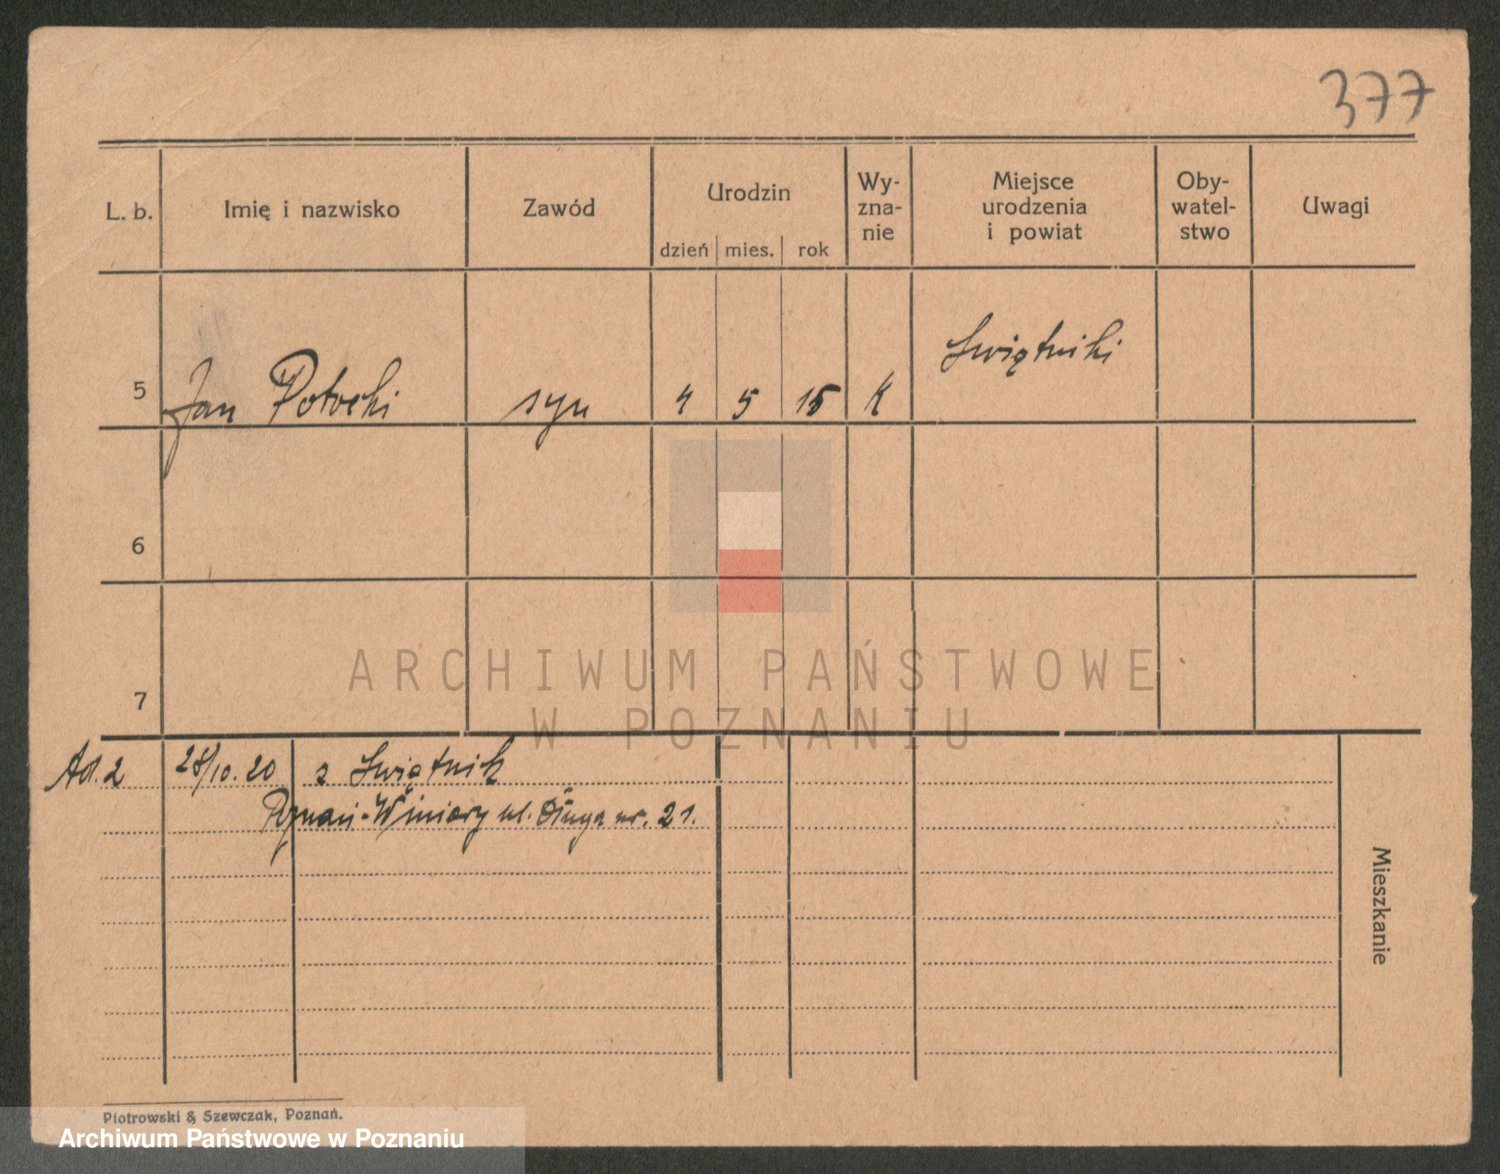 377
L. b. Imię i nazwisko Zawód Urodzin Wy-zna-nie Miejsce urodzenia i powiat Oby-watel-stwo Uwagi
dzień mies. rok
5 Jan Potocki syn 4 5 15 K Swiętniki
6
7
ARCHIWUM PAŃSTWOWE
W POZNANIU
Ad. 2 28/10.20 z Swiętnik
Poznań-Winiary ul. Długa nr. 21.
Mieszkanie
Piotrowski & Szewczak, Poznań.
Archiwum Państwowe w Poznaniu